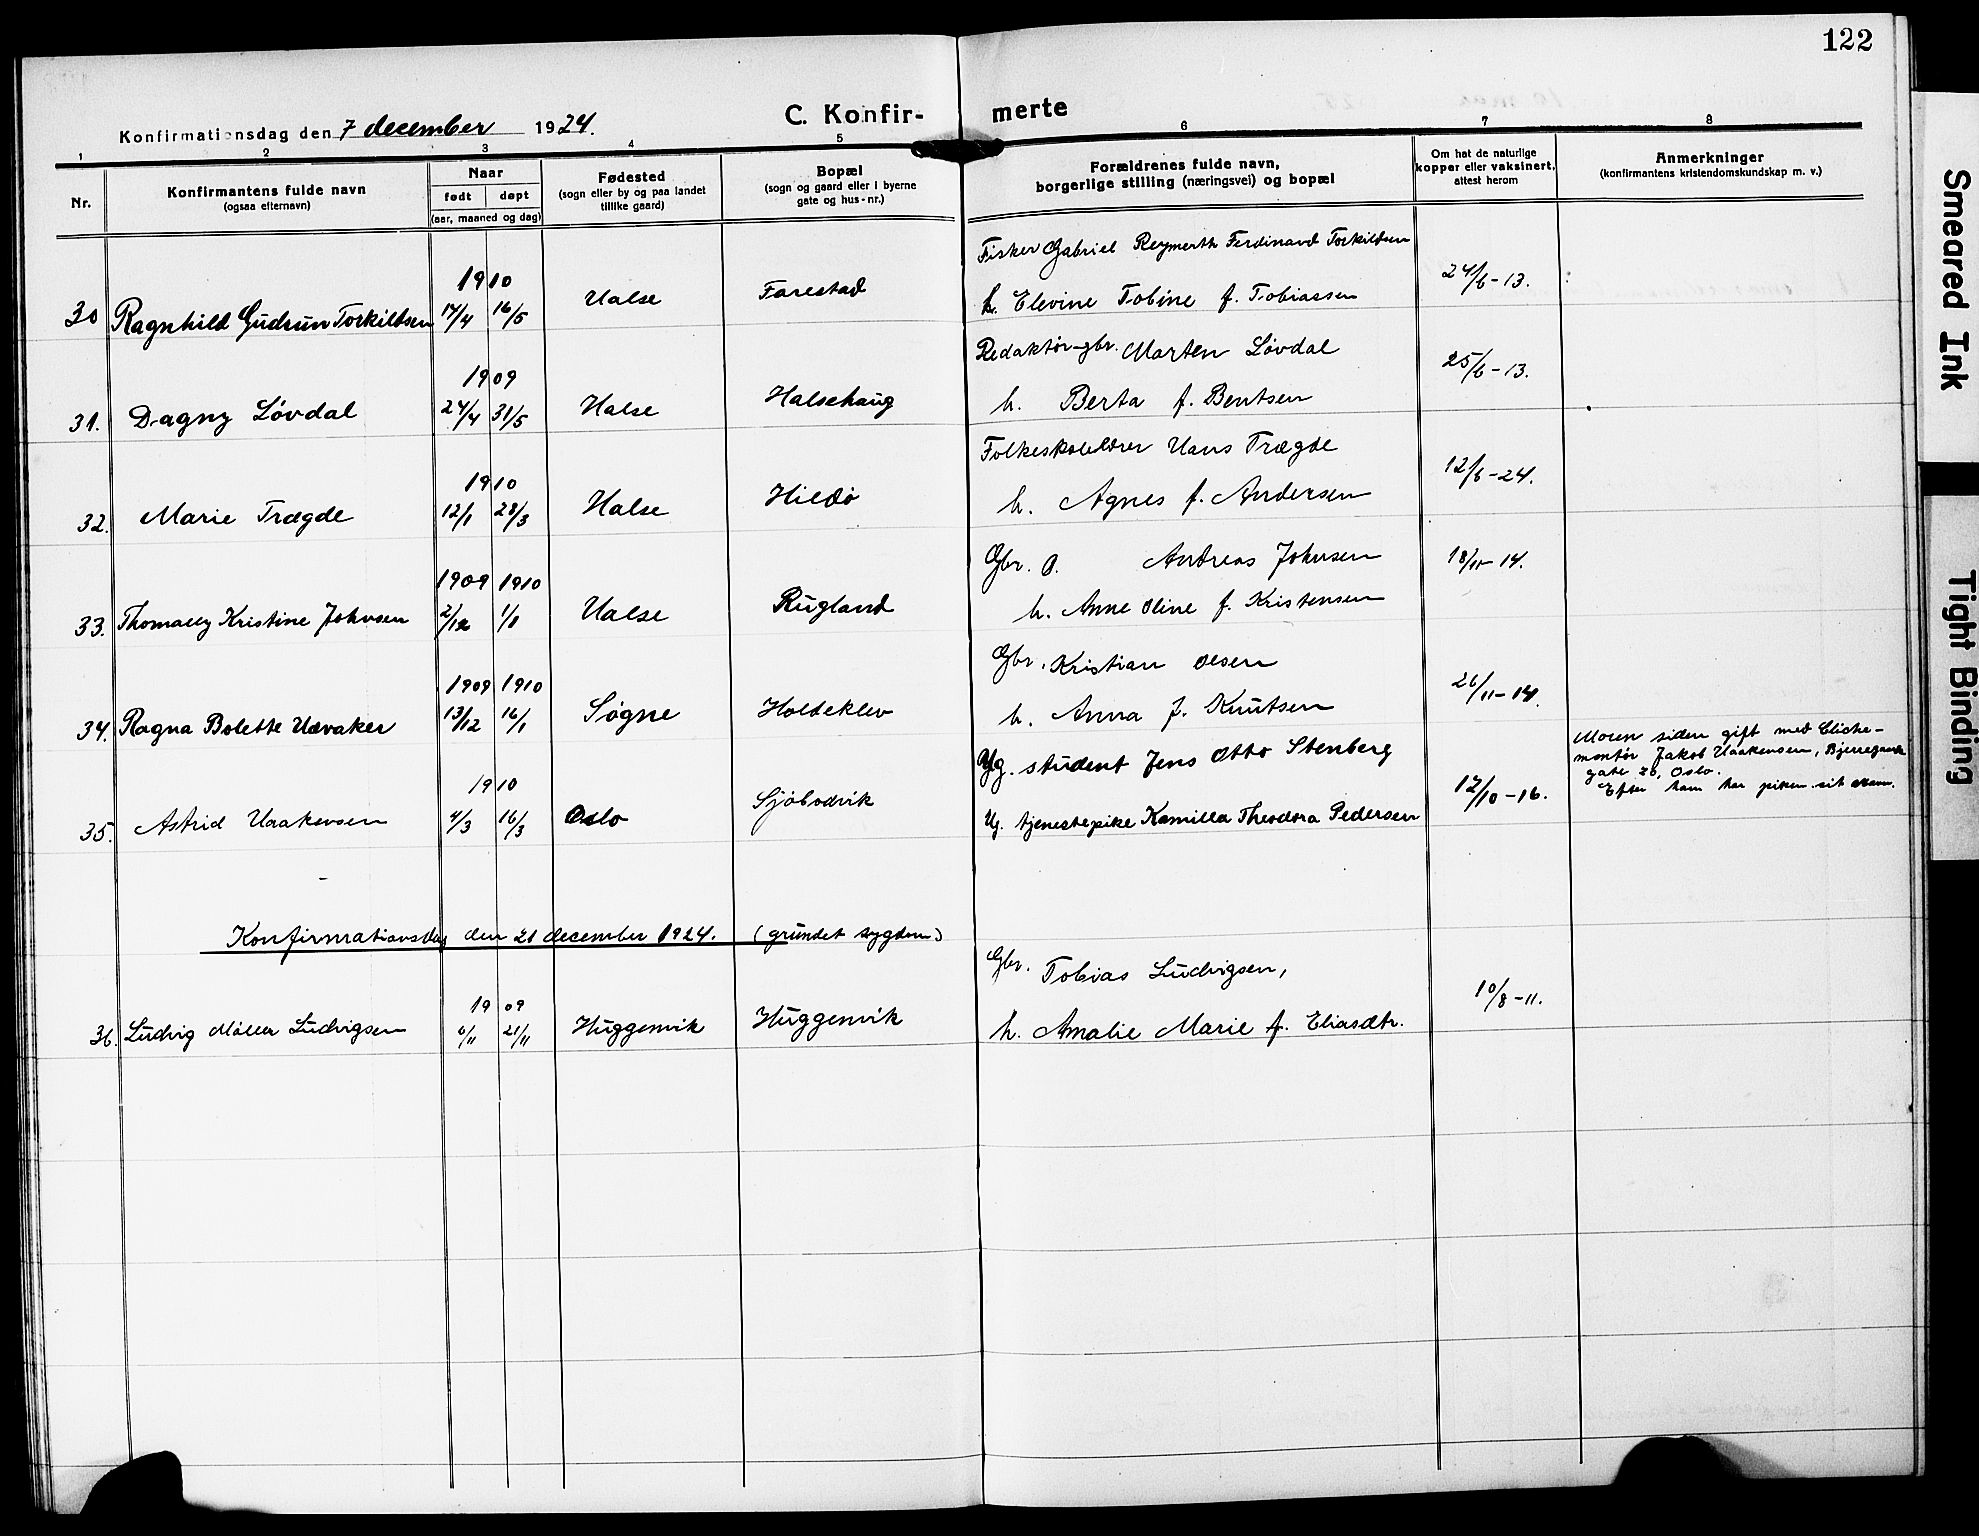 122
C. Konfir- merte
Konfirmationsdag den 7 december 1924.
1 2 3 4 5 6 7 8
Nr.
Konfirmantens fulde navn
(ogsaa efternavn)
Naar
født døpt
(aar, maaned og dag)
Fødested
(sogn eller by og paa landet
tillike gaard)
Bopæl
(sogn og gaard eller i byerne
gate og hus-nr.)
Forældrenes fulde navn,
borgerlige stilling (næringsvei) og bopæl
Om hat de naturlige
kopper eller vaksinert,
attest herom
Anmerkninger
(konfirmantens kristendomskundskap m. v.)
Fisker Gabriel Reymerth Ferdinand Torkildsen
1910
30 Ragnhild Gudrun Torkildsen 17/4 16/5 Halse Farestad h. Elevine Tobine f. Tobiassen 24/6-13.
Redaktør-gbr. Marten Løvdal
1909
31. Dagny Løvdal 24/4 31/5 Halse Halsehaug h. Berta f. Bentsen 25/6-13.
Folkeskolelærer Hans Trægde
1910
32. Marie Trægde 12/1 28/3 Halse Hildø h. Agnes f. Andersen 12/6-24.
Gbr. O. Andreas Johnsen
1909 1910
33. Thomally Kristine Johnsen 2/12 1/1 Halse Rugland h. Anne Oline f. Kristensen 18/11-14.
Gbr. Kristian Olsen
1909 1910
34. Ragna Bolette Udvaker 13/12 16/1 Søgne Holdeklev h. Anna f. Knutsen 26/11-14.
Ug. student Jens Otto Stenberg
1910
35. Astrid Haakensen 4/3 16/3 Oslo Sjøbodvik Ug. tjenestepike Kamilla Theodora Pedersen 12/10-16.
Moren siden gift med Cliche-
montør Jakob Haakensen, Bjerregaards
gate 26, Oslo.
Efter ham har piken sit navn.
Konfirmationsdag den 21 december 1924. (grundet sygdom)
Gbr. Tobias Ludvigsen,
1909
36. Ludvig Møller Ludvigsen 6/11 21/11 Huggenvik Huggenvik h. Amalie Marie f. Eliasdtr. 10/8-11.
Smeared Ink
Tight Binding